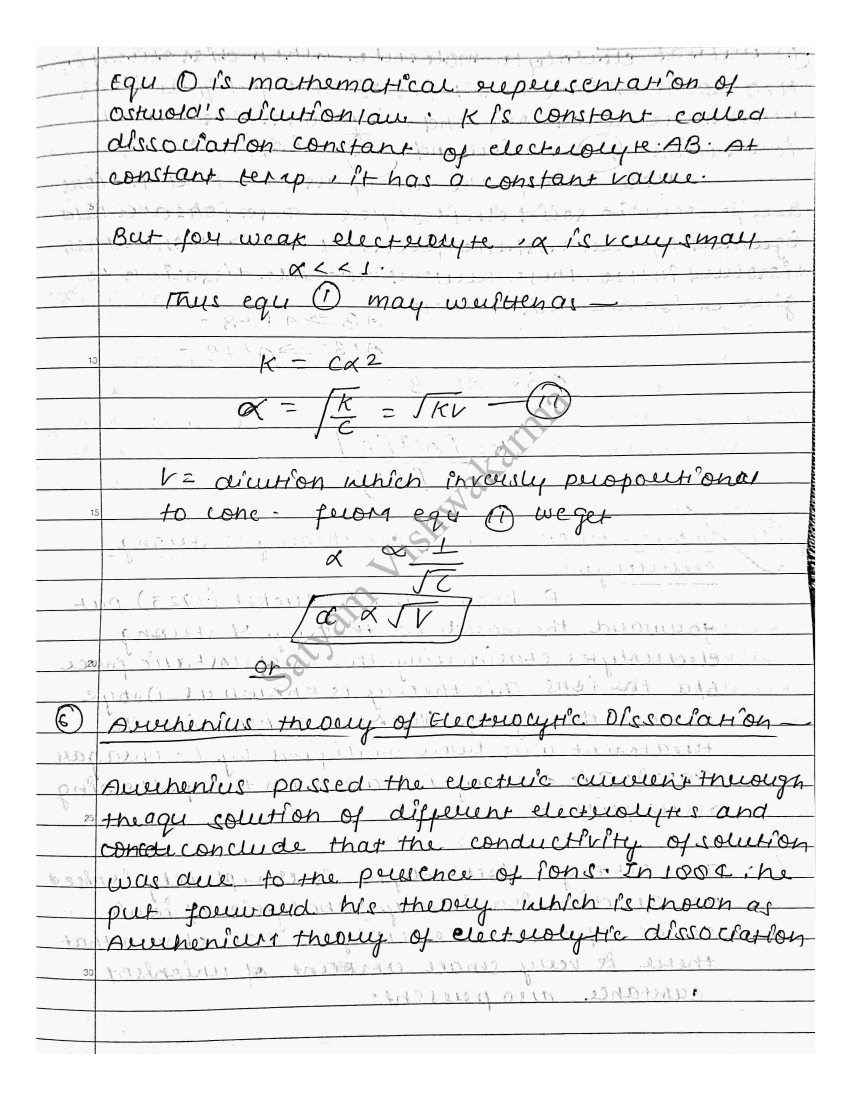 Equ ① is mathematical representation of
Ostwold's dilution law. K is constant called
dissociation constant of electrolyte AB. At
constant temp, it has a constant value.
5
But for weak electrolyte, α is very small
α << 1.
Thus equ ① may written as —
10
K = Cα2
α = √K/C = √KV — ⑪
V = dilution which inversly proportional
15
to conc. from equ ⑪ we get
α ∝ 1/√C
α ∝ √V
20
or
⑥ Arrhenius theory of Electrolytic Dissociation —
Arrhenius passed the electric current through
25
the aqu solution of different electrolytes and
conclude that the conductivity of solution
was due to the presence of ions. In he
put forward his theory which is known as
Arrhenius theory of electrolytic dissociation
30
Satyam Vishwakarma